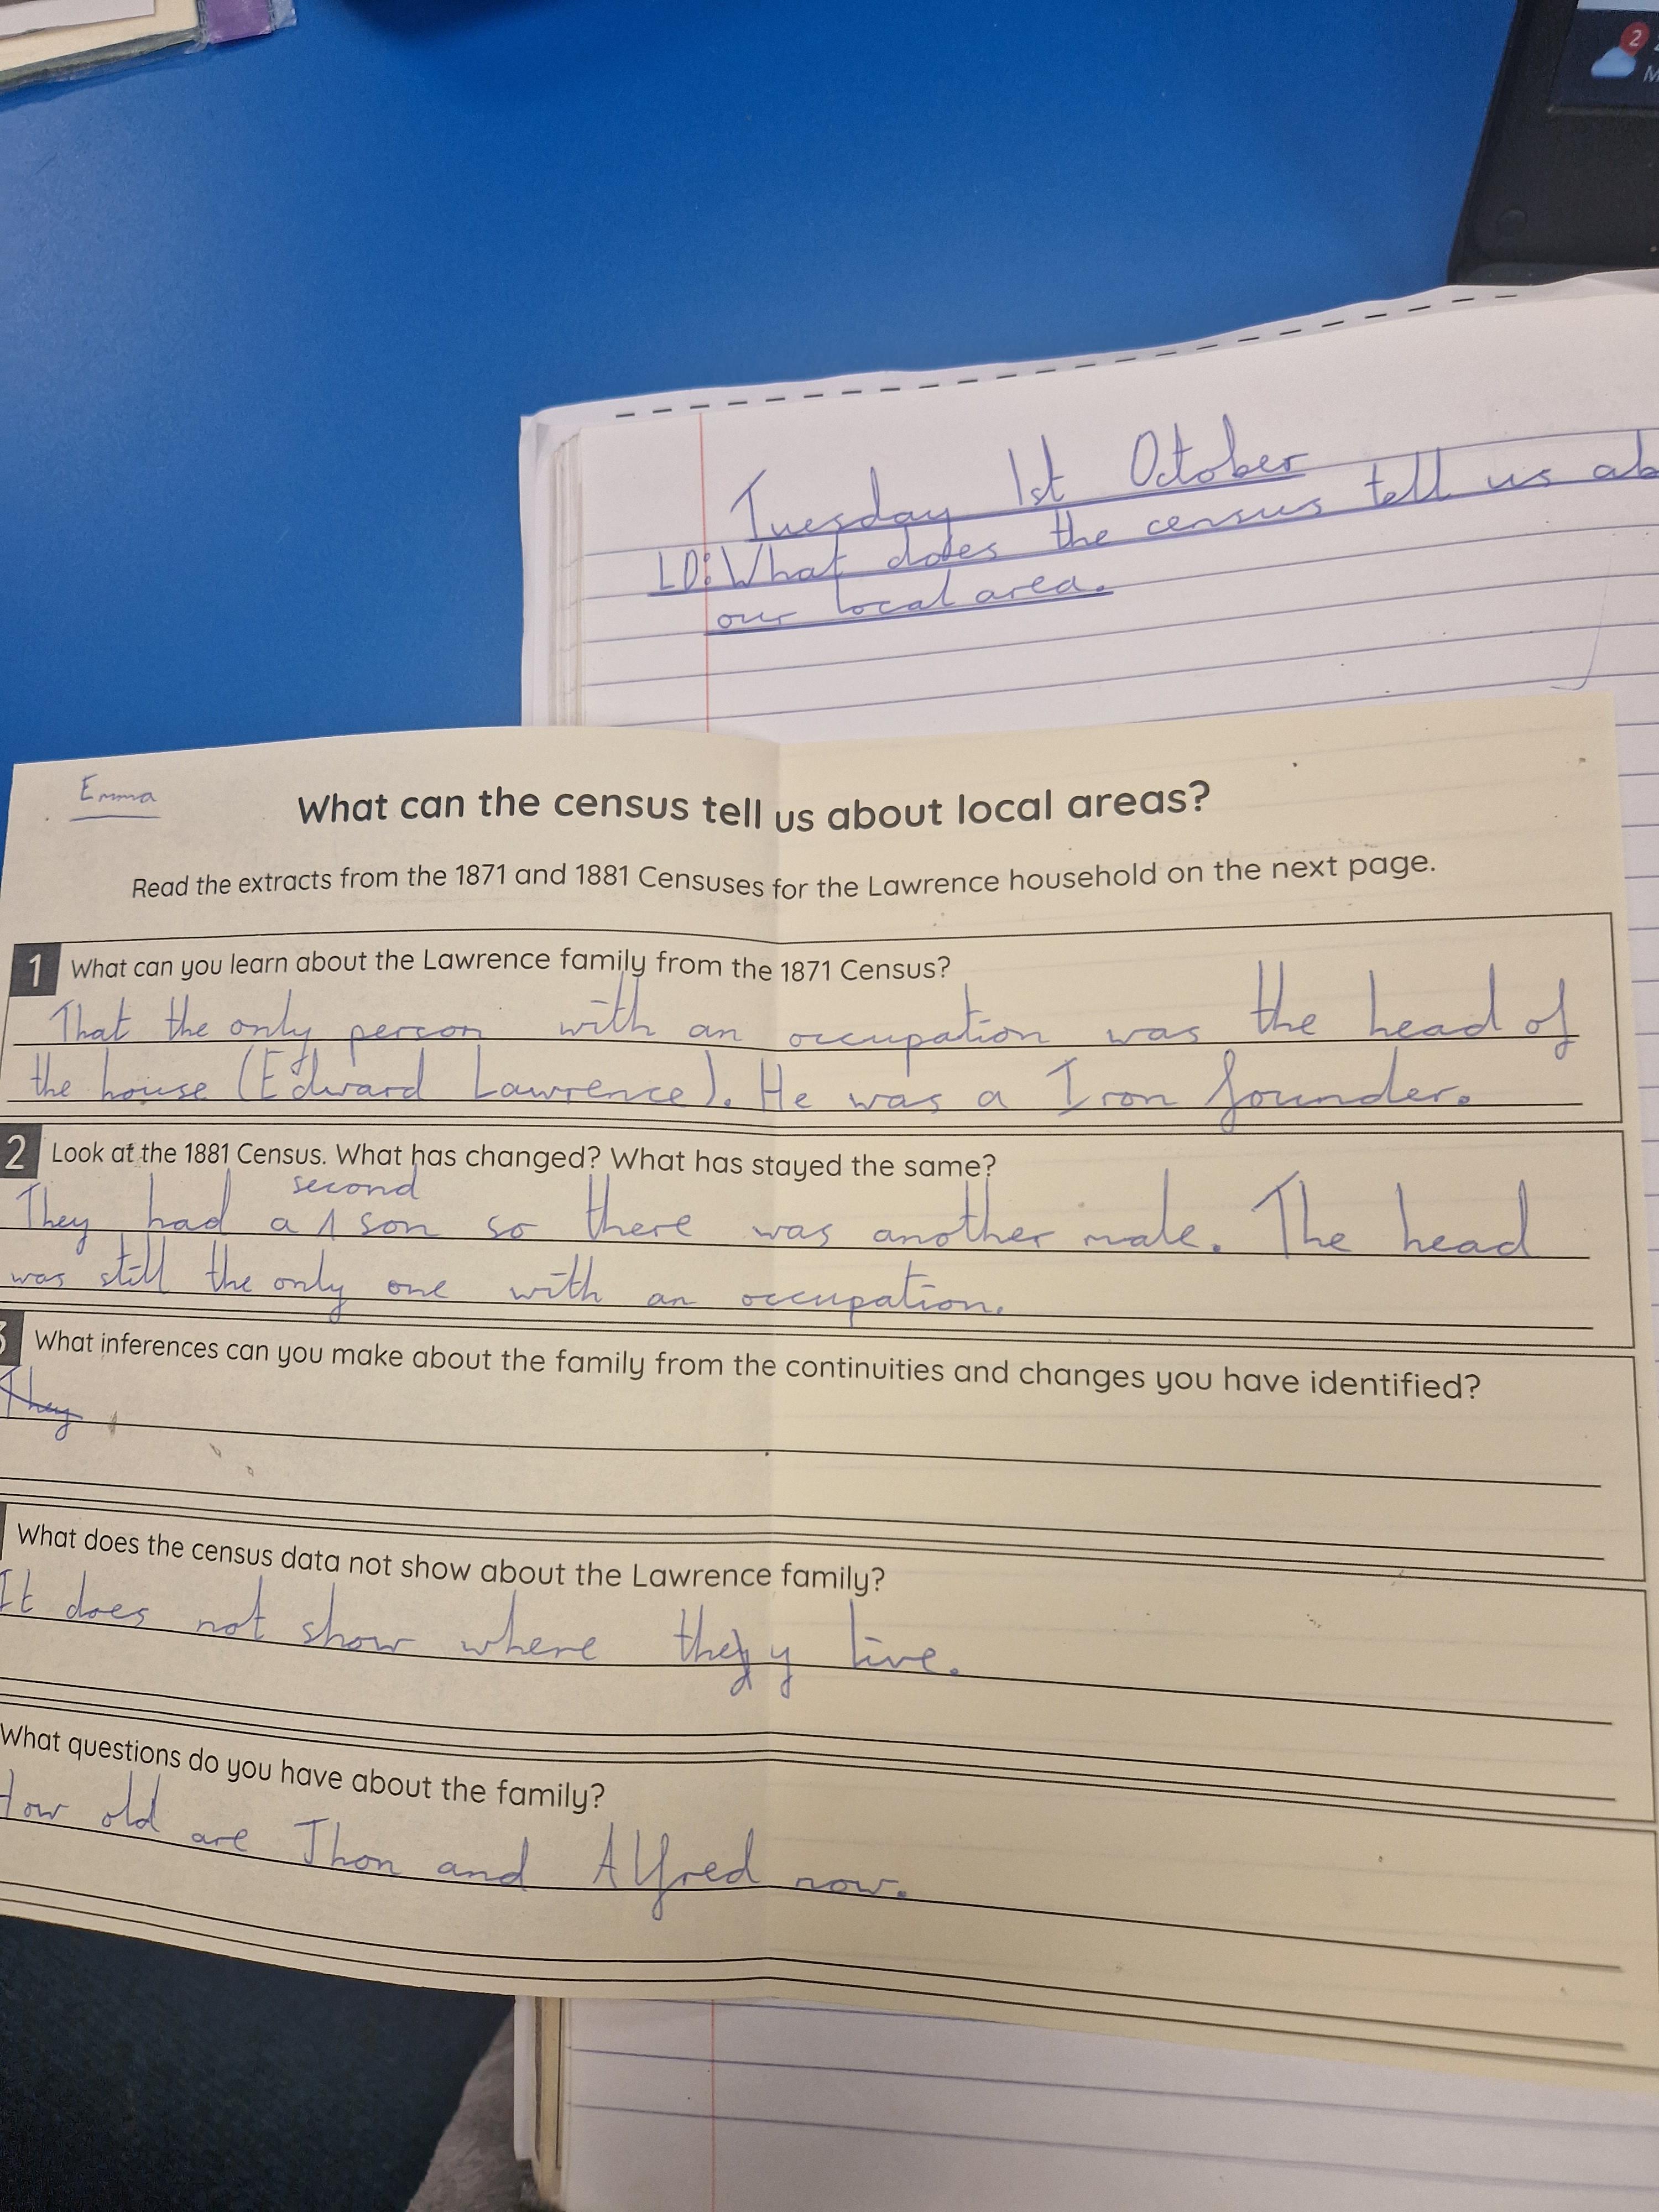 2
Tuesday 1st October
LO: What does the census tell us ab
our local area.
Emma
What can the census tell us about local areas?
Read the extracts from the 1871 and 1881 Censuses for the Lawrence household on the next page.
1 What can you learn about the Lawrence family from the 1871 Census?
That the only person with an occupation was the head of
the house (Edward Lawrence). He was a Iron founder.
2 Look at the 1881 Census. What has changed? What has stayed the same?
second
They had a son so there was another male. The head
was still the only one with an occupation.
3 What inferences can you make about the family from the continuities and changes you have identified?
They
What does the census data not show about the Lawrence family?
It does not show where they live.
What questions do you have about the family?
How old are Jhon and Alfred now.